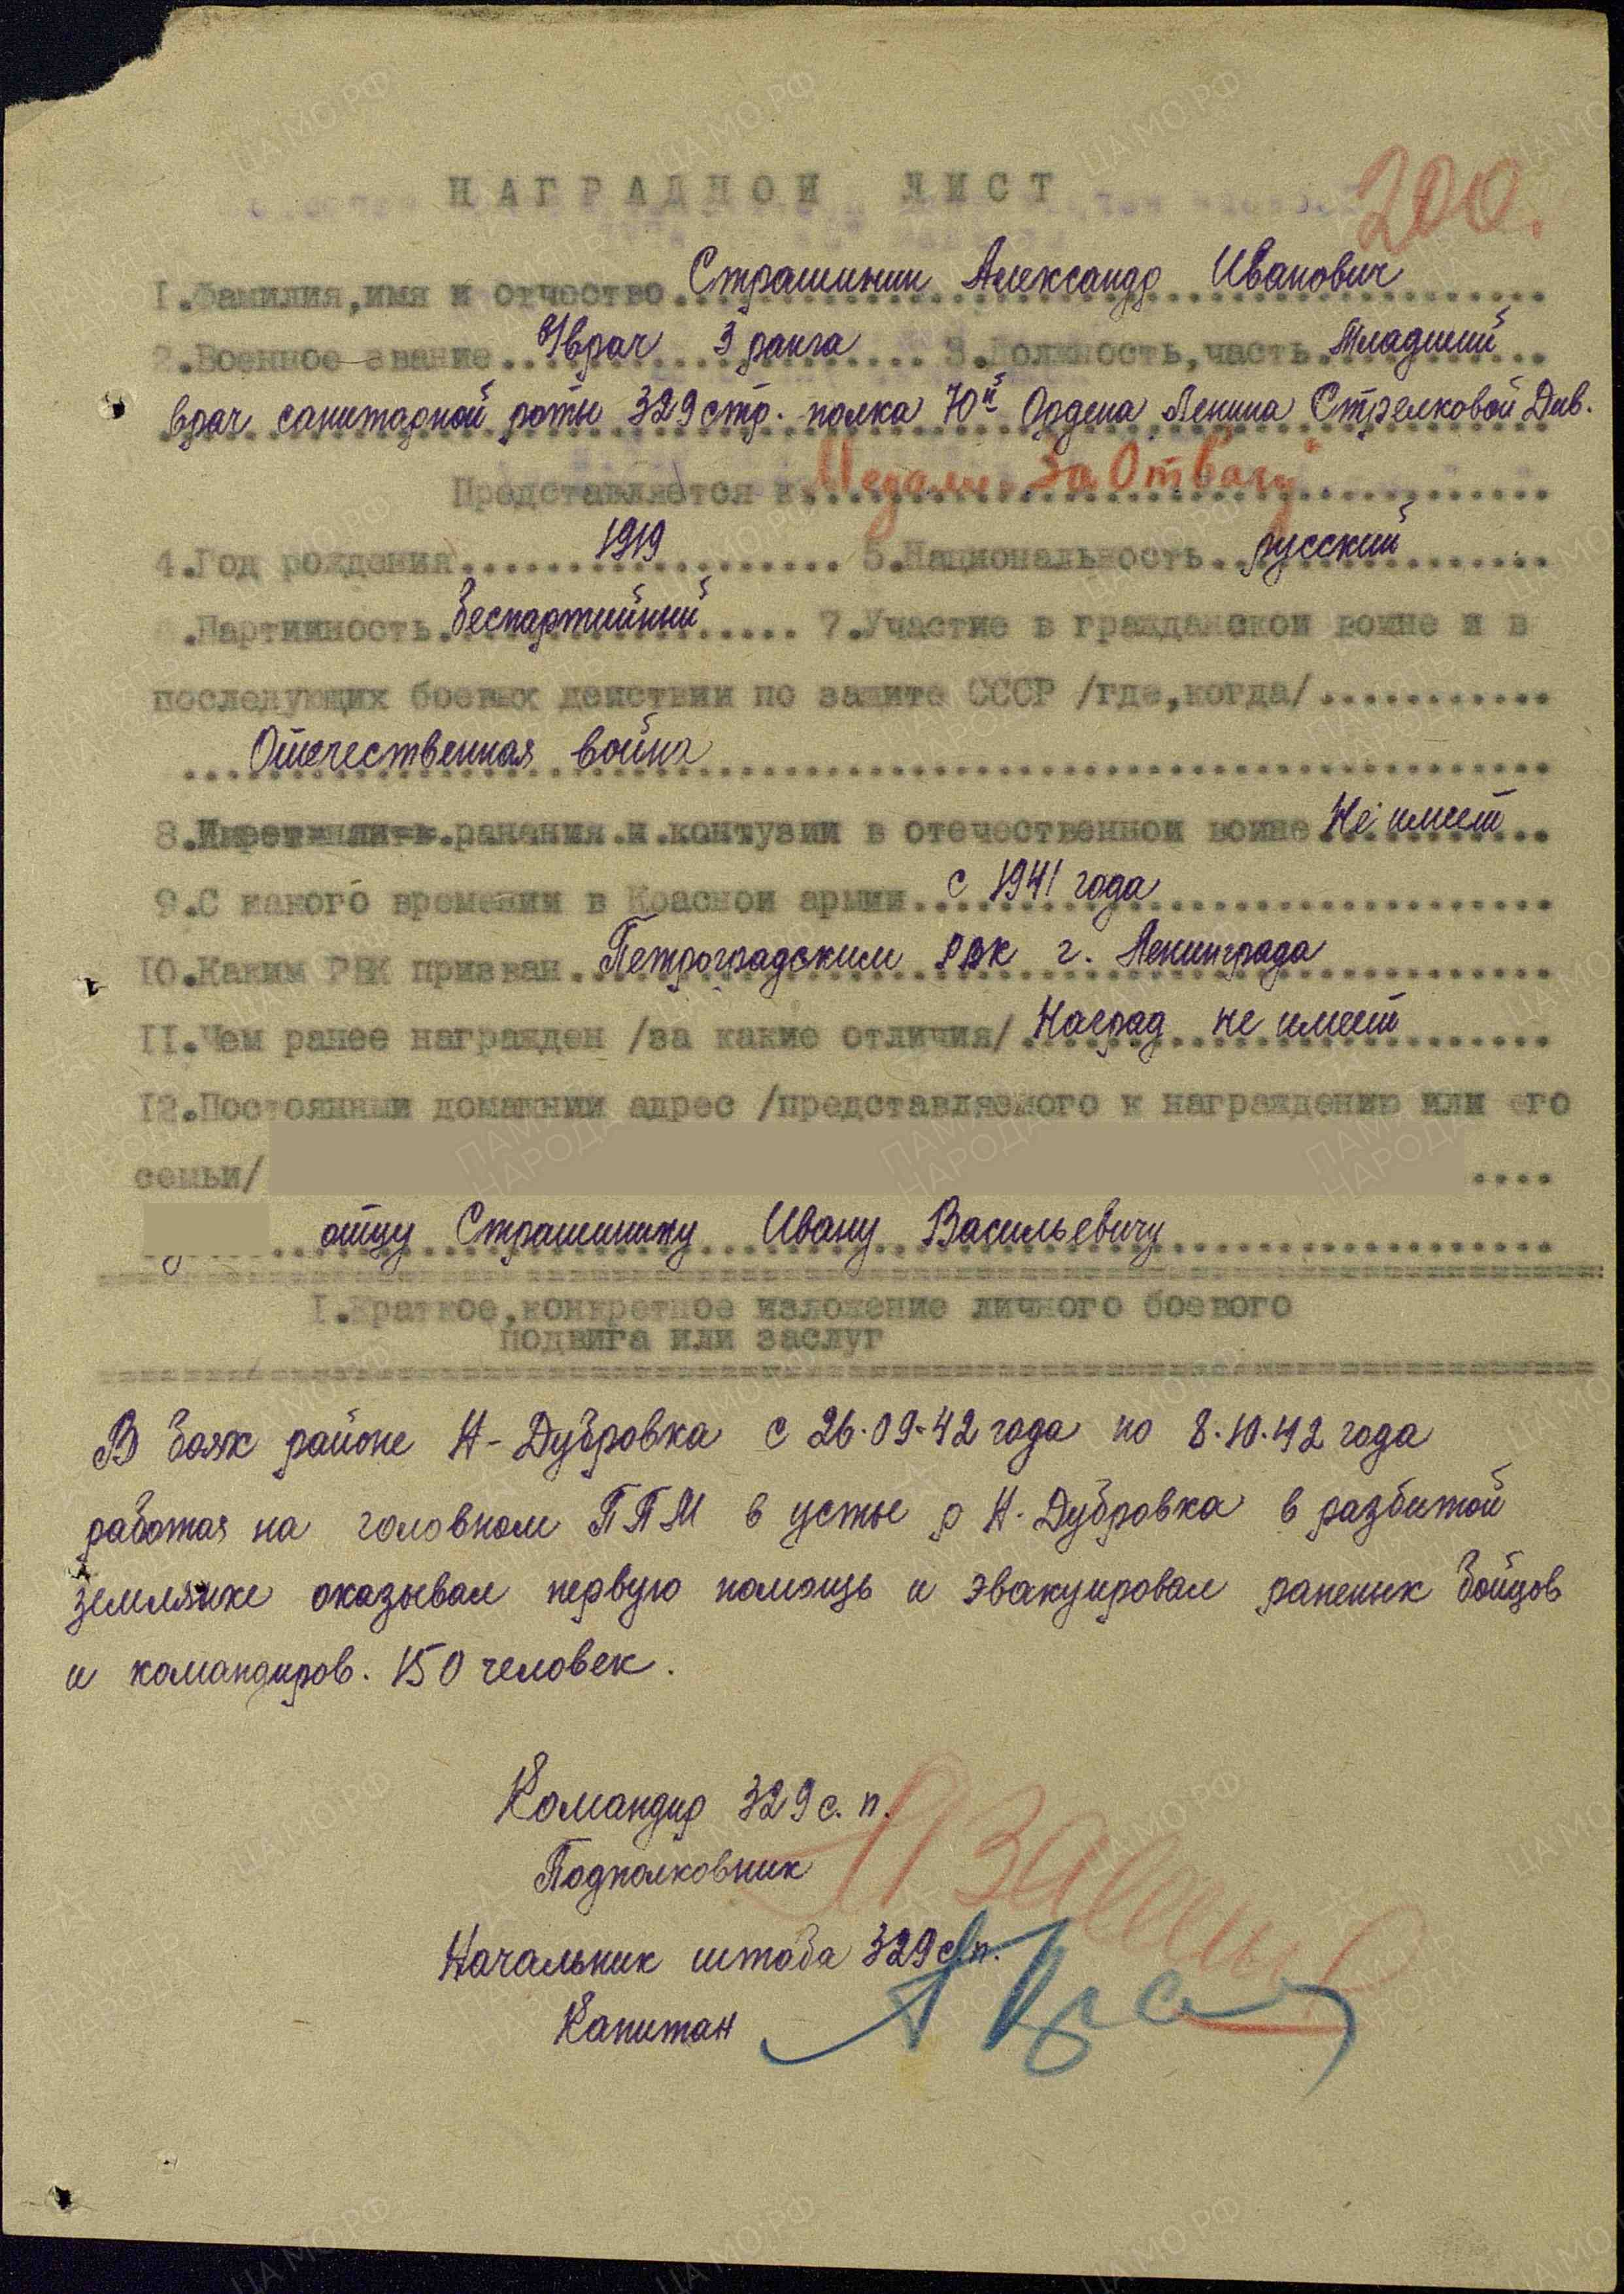 200.
НАГРАДНОЙ ЛИСТ
1.Фамилия,имя и отчество Страшинин Александр Иванович
2.Военное звание В/врач 3 ранга 3.Должность,часть Младший
врач санитарной роты 329 стр. полка 70й Ордена Ленина Стрелковой Див.
Представляется к Медали "За Отвагу"
4.Год рождения 1919 5.Национальность русский
6.Партийность беспартийный 7.Участие в гражданской войне и в
последующих боевых действий по защите СССР /где,когда/
Отечественная война
8.Имеет ли ранения и контузии в отечественной войне Не имеет
9.С какого времени в Красной армии с 1941 года
10.Каким РВК призван Петроградским РВК г. Ленинграда
11.Чем ранее награжден /за какие отличия/ Наград не имеет
12.Постоянный домашний адрес /представляемого к награждению или его
семьи/
отцу Страшинину Ивану Васильевичу
1.Краткое,конкретное изложение личного боевого
подвига или заслуг
В боях районе Н-Дубровка с 26.09.42 года по 8.10.42 года
работая на головном ППМ в устье р Н. Дубровка в разбитой
землянке оказывал первую помощь и эвакуировал раненых бойцов
и командиров. 150 человек.
Командир 329 с.п.
Подполковник
Начальник штаба 329 с.п.
Капитан